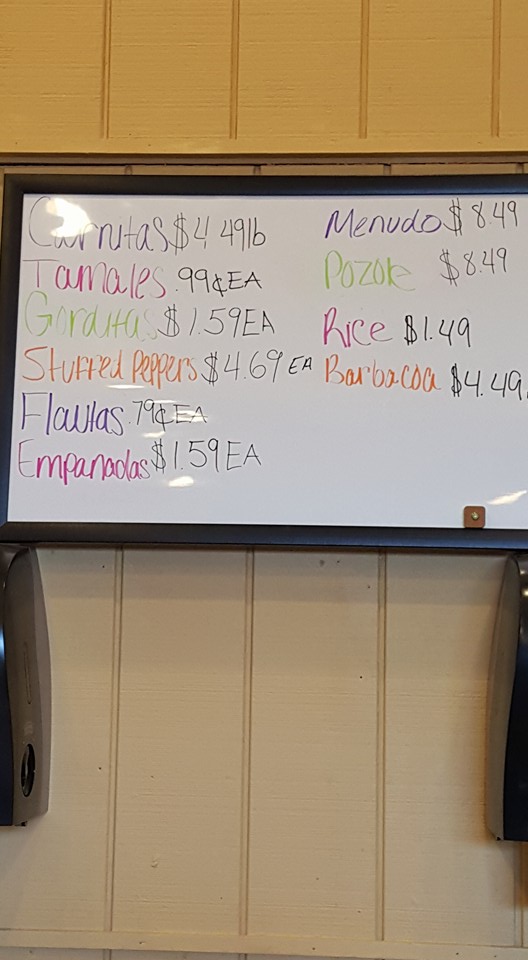 Carnitas $4.49lb
Tamales .99¢EA
Gorditas $1.59EA
Stuffed Peppers $4.69 EA
Flautas .79¢EA
Empanadas $1.59EA
Menudo $8.49
Pozole $8.49
Rice $1.49
Barbacoa $4.49